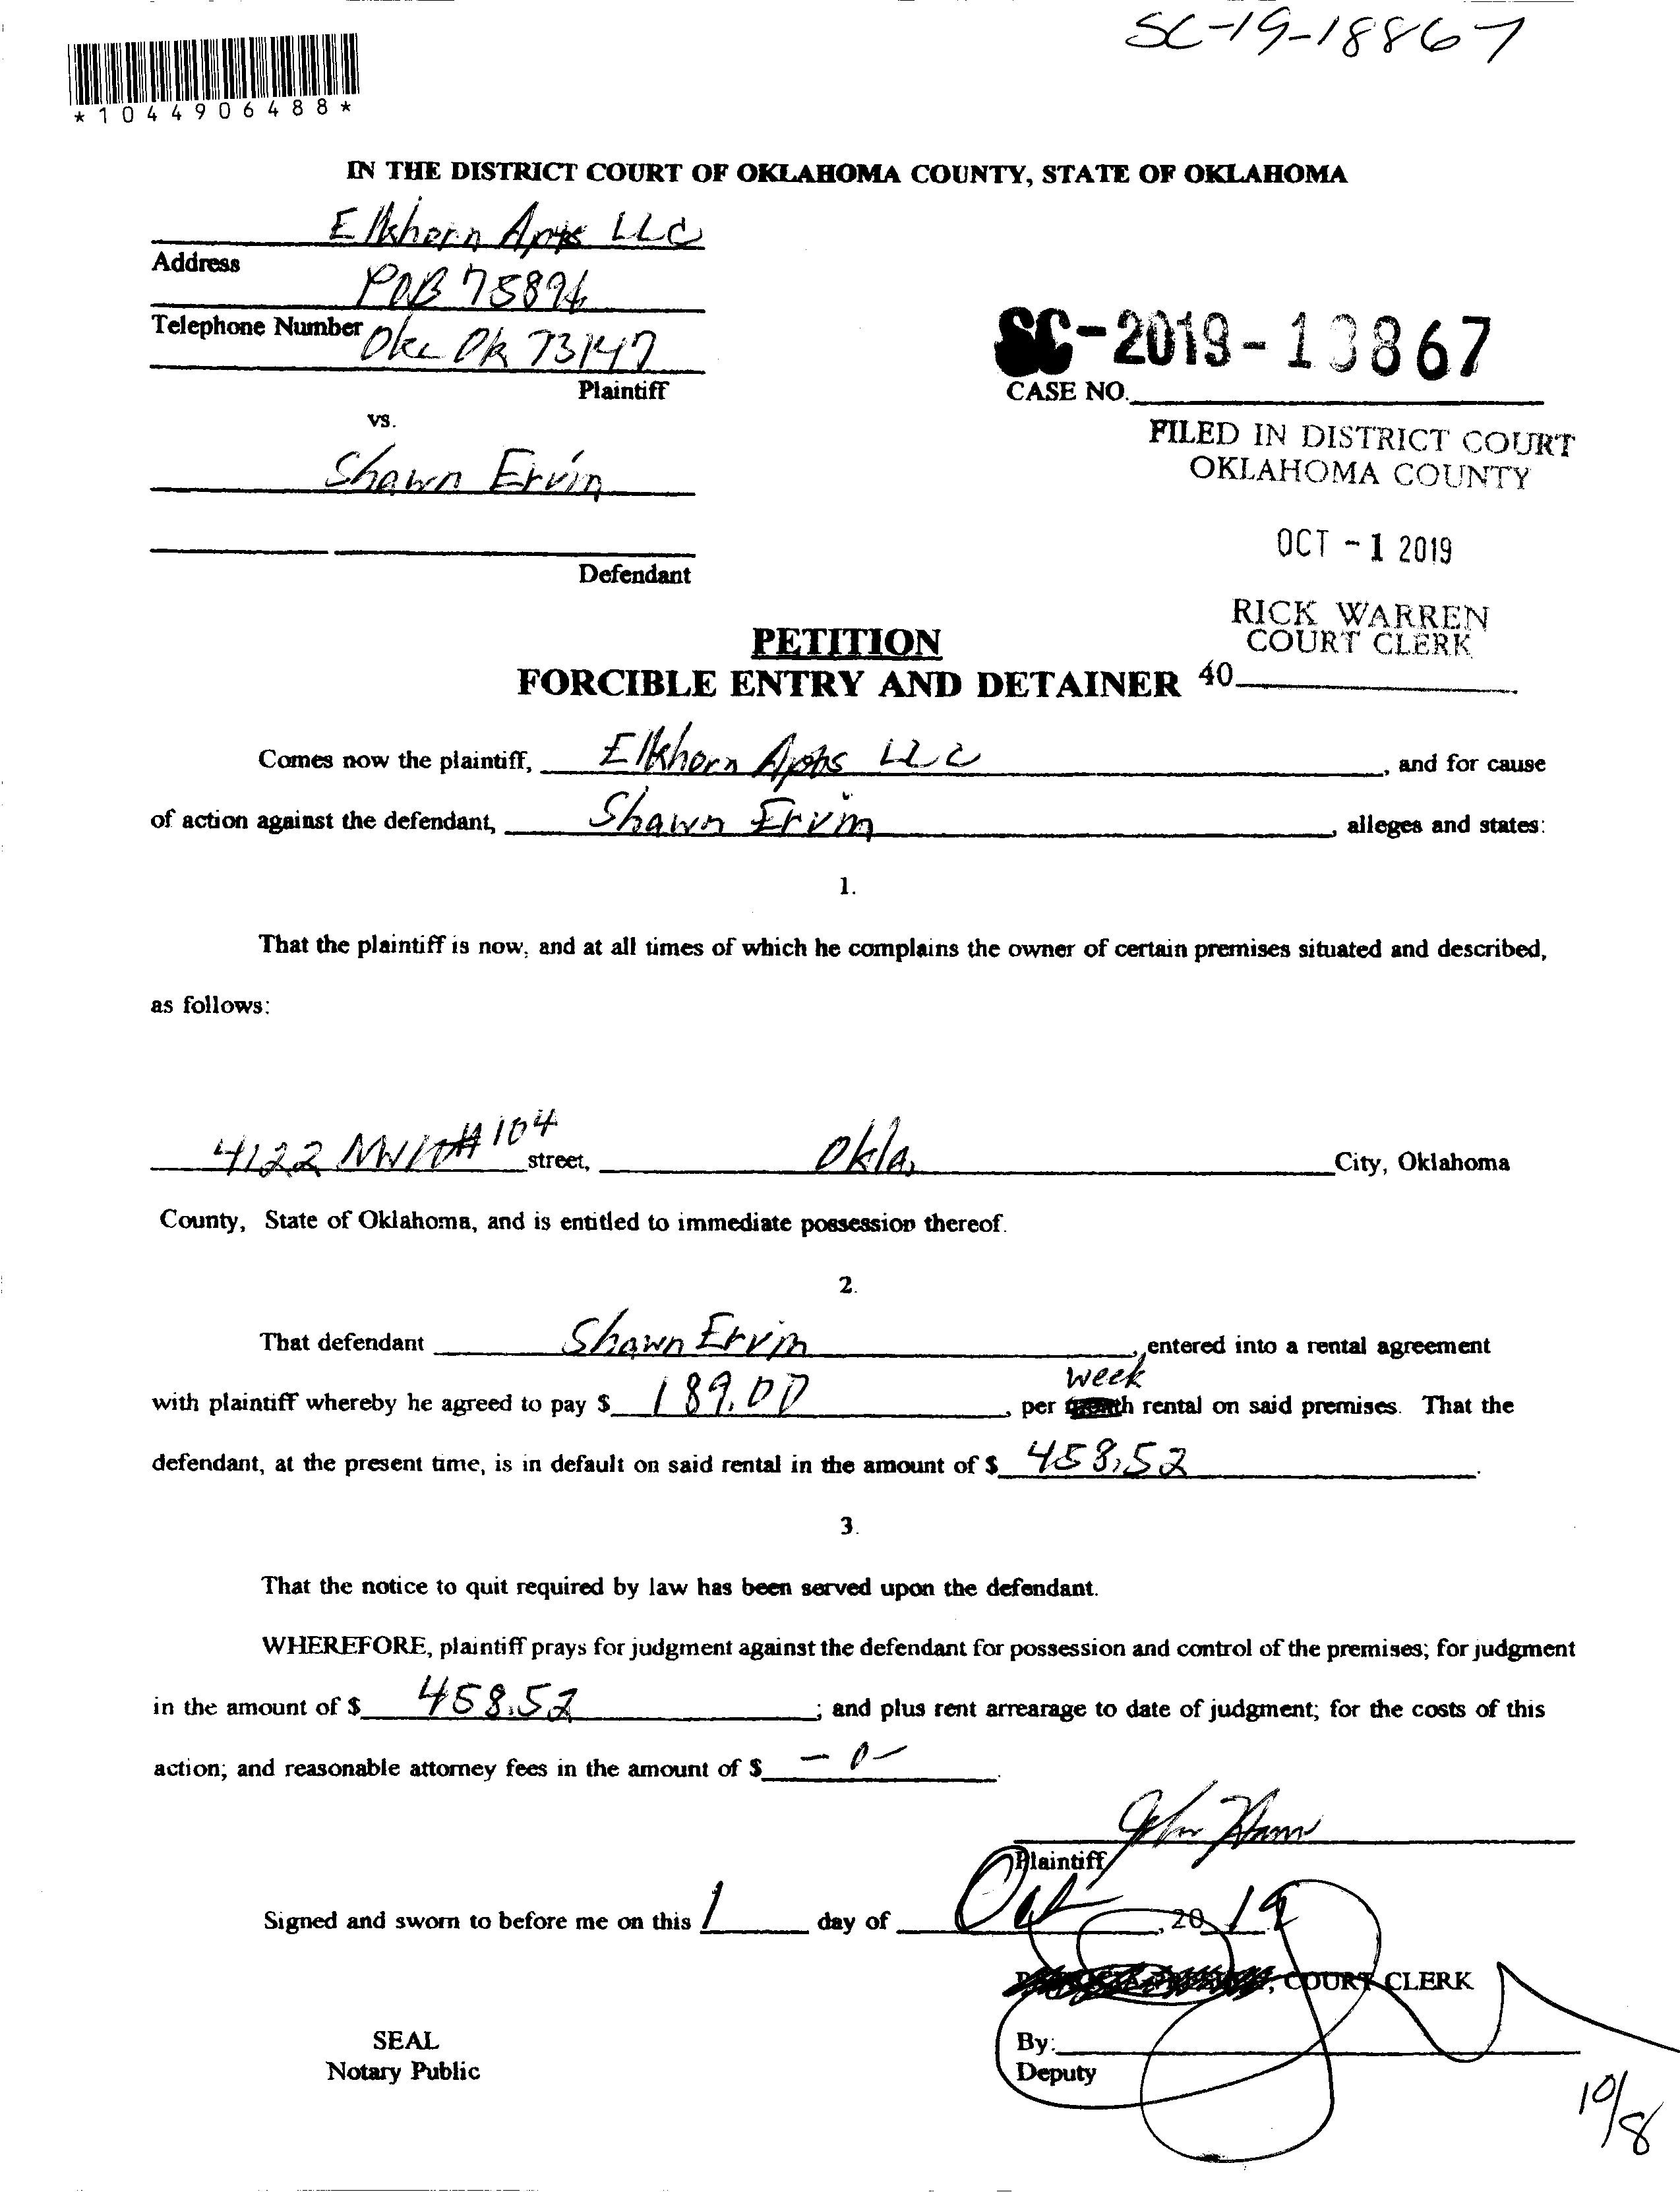 SC-19-18867
*1044906488*
IN THE DISTRICT COURT OF OKLAHOMA COUNTY, STATE OF OKLAHOMA
Elkhorn Apts LLC
Address
POB 75894
Telephone Number Okc Ok 73147
Plaintiff
SC-2019-18867
CASE NO.
vs.
FILED IN DISTRICT COURT
OKLAHOMA COUNTY
Shawn Ervin
OCT -1 2019
Defendant
RICK WARREN
COURT CLERK
PETITION
FORCIBLE ENTRY AND DETAINER 40
Comes now the plaintiff, Elkhorn Apts LLC, and for cause
of action against the defendant, Shawn Ervin, alleges and states:
1.
That the plaintiff is now, and at all times of which he complains the owner of certain premises situated and described,
as follows:
4122 NW 10 # 104 street, Okla, City, Oklahoma
County, State of Oklahoma, and is entitled to immediate possession thereof.
2.
That defendant Shawn Ervin, entered into a rental agreement
week
with plaintiff whereby he agreed to pay $ 189.00, per rental on said premises. That the
defendant, at the present time, is in default on said rental in the amount of $ 458.52.
3.
That the notice to quit required by law has been served upon the defendant.
WHEREFORE, plaintiff prays for judgment against the defendant for possession and control of the premises; for judgment
in the amount of $ 458.52; and plus rent arrearage to date of judgment; for the costs of this
action; and reasonable attorney fees in the amount of $ -0-.
Plaintiff
Signed and sworn to before me on this 1 day of Oct, 2019
, COURT CLERK
SEAL
By:
Notary Public
Deputy
10/8